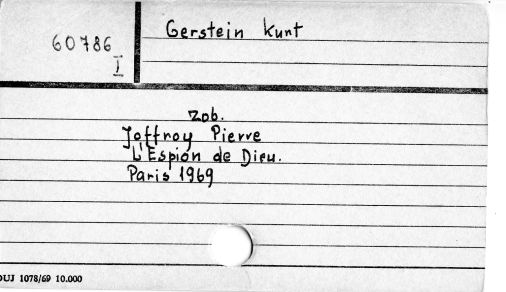 60786
I
Gerstein Kurt
zob.
Joffroy Pierre
L'Espion de Dieu.
Paris 1969
DUJ 1078/69 10.000